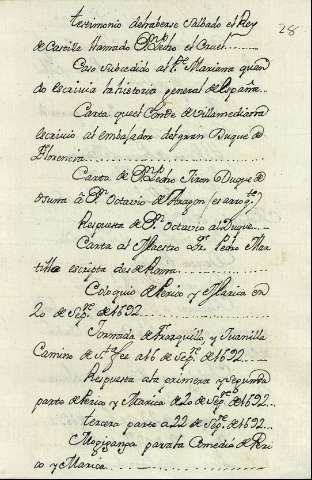 28
testimonio de haberse salbado el Rey
de Castilla llamado Dn. Pedro el Cruel
Caso subcedido al Pe. Mariana quan
do escriuia la historia general de España
Carta que el Conde de Villamediana
escriuio al embajador del gran Duque de
Florencia
Carta de Dn. Pedro Jiron Duque de
osuna á Dn. Octavio de Aragon (es arrogte.)
Respuesta de Dn. Octavio al Duque
Carta al Maestro Fr. Pedro Mar
escripta desde Roma
Coloquio de Perico y Marica en
20 de Sepre. de 1692
Jornada de Frasquillo, y Juanilla
Camino de Sta. Fee a 16 de Sepre. de 1692
Respuesta ala primera y segunda
parte de Perico y Marica de 20 de Sepre. de 1692
tercera parte a 22 de Sepre. de 1692
Mogiganga para la Comedia de Peri
co y Marica